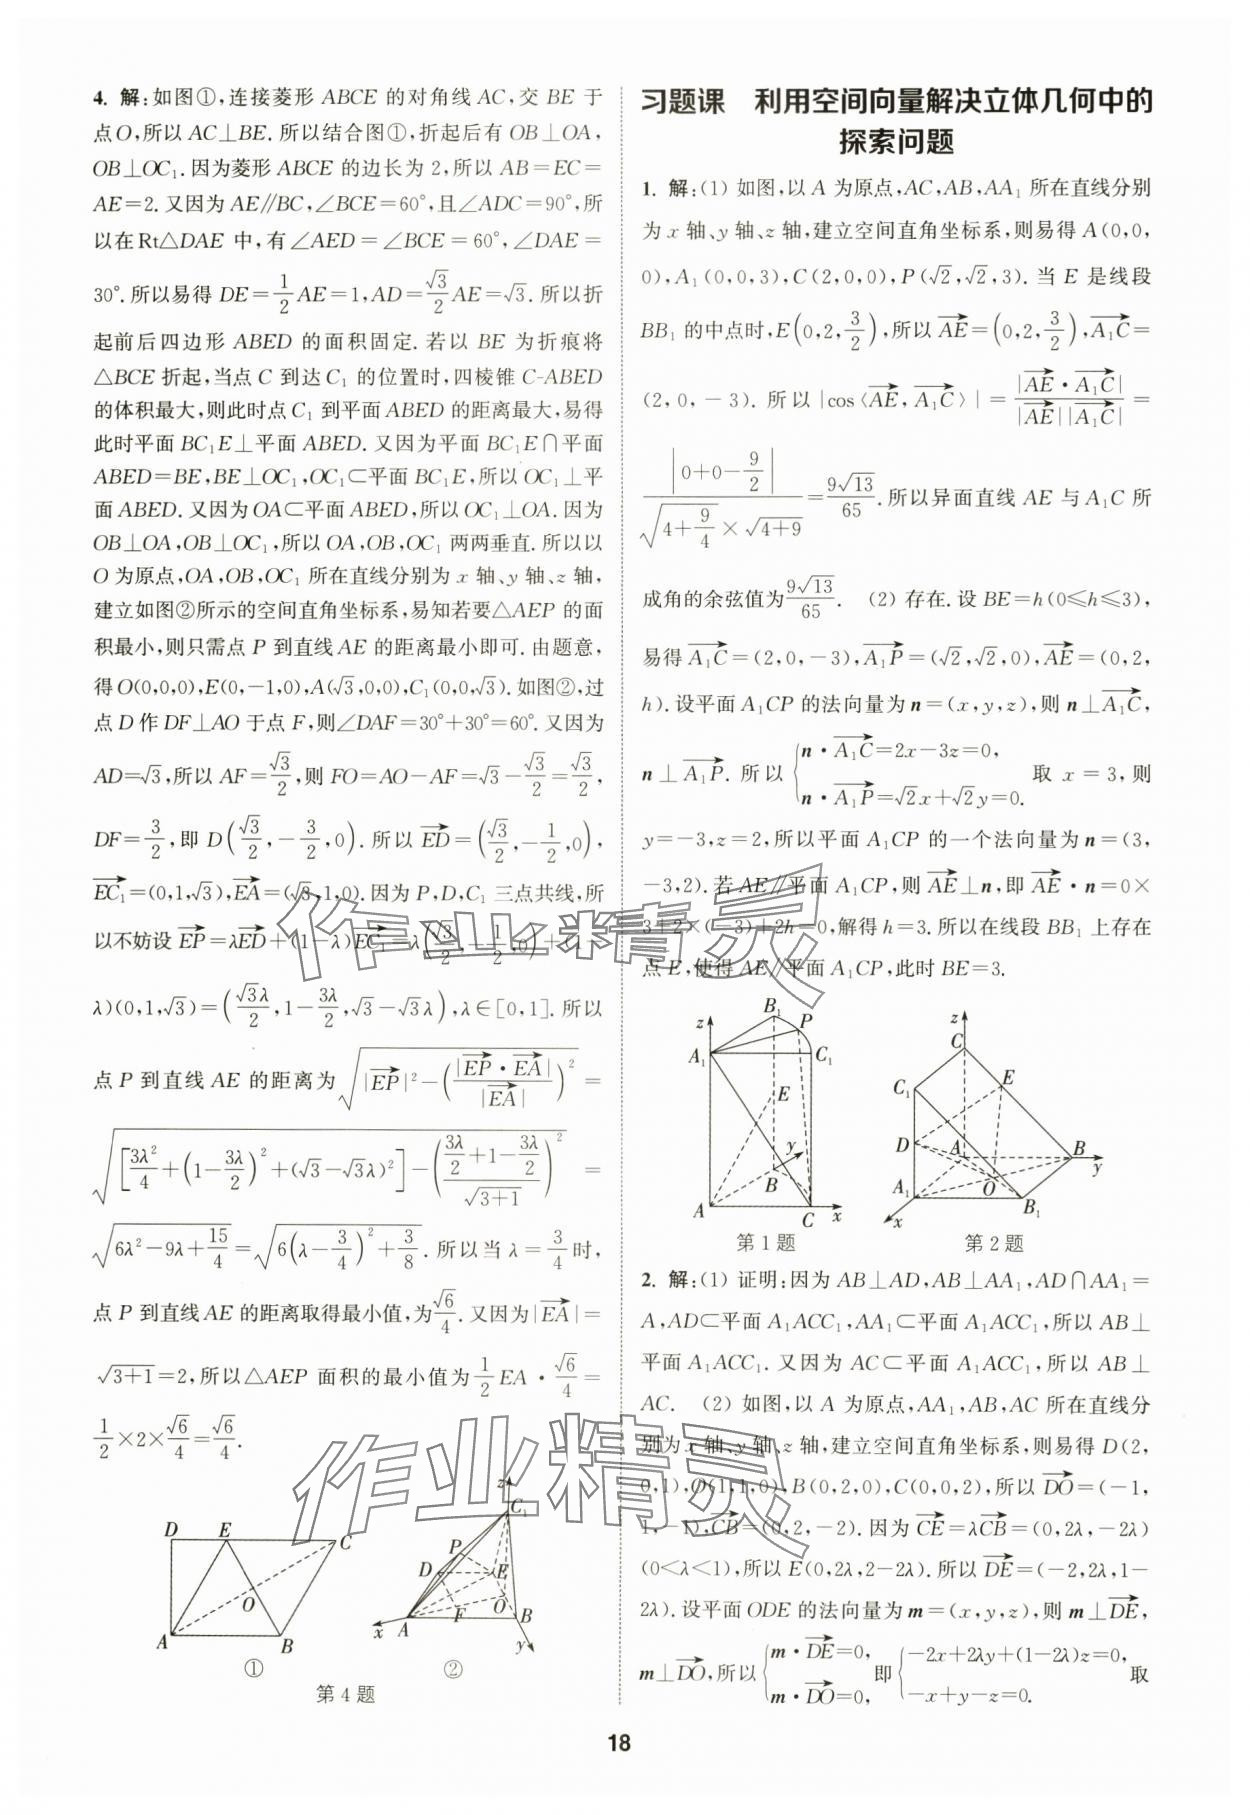 4. 解:如图①,连接菱形 ABCE 的对角线 AC,交 BE 于
点O,所以 AC⊥BE. 所以结合图①,折起后有 OB⊥OA,
OB⊥OC₁. 因为菱形 ABCE 的边长为 2,所以 AB=EC=
AE=2. 又因为 AE//BC,∠BCE=60°,且∠ADC=90°,所
以在Rt△DAE 中,有∠AED=∠BCE=60°,∠DAE=
30°. 所以易得 DE=1/2 AE=1,AD=√3/2 AE=√3. 所以折
起前后四边形 ABED 的面积固定. 若以 BE 为折痕将
△BCE 折起,当点 C 到达 C₁ 的位置时,四棱锥 C-ABED
的体积最大,则此时点 C₁ 到平面 ABED 的距离最大,易得
此时平面 BC₁E⊥平面 ABED. 又因为平面 BC₁E∩平面
ABED=BE,BE⊥OC₁,OC₁⊂平面 BC₁E,所以 OC₁⊥平
面 ABED. 又因为 OA⊂平面 ABED,所以 OC₁⊥OA. 因为
OB⊥OA,OB⊥OC₁,所以 OA,OB,OC₁ 两两垂直. 所以以
O 为原点,OA,OB,OC₁ 所在直线分别为 x 轴、y 轴、z 轴,
建立如图②所示的空间直角坐标系,易知若要△AEP 的面
积最小,则只需点 P 到直线 AE 的距离最小即可. 由题意,
得O(0,0,0),E(0,-1,0),A(√3,0,0),C₁(0,0,√3). 如图②,过
点 D 作 DF⊥AO 于点 F,则∠DAF=30°+30°=60°. 又因为
AD=√3,所以 AF=√3/2,则 FO=AO-AF=√3-√3/2=√3/2,
DF=3/2,即 D(√3/2,-3/2,0). 所以 ED→=(√3/2,-1/2,0),
EC₁→=(0,1,√3),EA→=(√3,1,0). 因为 P,D,C₁ 三点共线,所
以不妨设 EP→=λED→+(1-λ)EC₁→=λ(√3/2,-1/2,0)+(1-
λ)(0,1,√3)=(√3λ/2,1-3λ/2,√3-√3λ),λ∈[0,1]. 所以
点 P 到直线 AE 的距离为 √(|EP→|²-(|EP→·EA→|/|EA→|)²)=
√([3λ²/4+(1-3λ/2)²+(√3-√3λ)²]-((3λ/2+1-3λ/2)/√(3+1))²)=
√(6λ²-9λ+15/4)=√(6(λ-3/4)²+3/8). 所以当 λ=3/4时,
点 P 到直线 AE 的距离取得最小值,为√6/4. 又因为|EA→|=
√(3+1)=2,所以△AEP 面积的最小值为 1/2 EA·√6/4=
1/2×2×√6/4=√6/4.
D E C
O
A B
①
z C₁
P
D E
O
F
x A B
y
②
第 4 题
习题课 利用空间向量解决立体几何中的
探索问题
1. 解:(1) 如图,以 A 为原点,AC,AB,AA₁ 所在直线分别
为 x 轴、y 轴、z 轴,建立空间直角坐标系,则易得 A(0,0,
0),A₁(0,0,3),C(2,0,0),P(√2,√2,3). 当 E 是线段
BB₁ 的中点时,E(0,2,3/2),所以 AE→=(0,2,3/2),A₁C→=
(2,0,-3). 所以|cos〈AE→,A₁C→〉|=|AE→·A₁C→|/(|AE→||A₁C→|)=
|0+0-9/2|/(√(4+9/4)×√(4+9))=9√13/65. 所以异面直线 AE 与 A₁C 所
成角的余弦值为9√13/65. (2) 存在. 设 BE=h(0≤h≤3),
易得 A₁C→=(2,0,-3),A₁P→=(√2,√2,0),AE→=(0,2,
h). 设平面 A₁CP 的法向量为 n=(x,y,z),则 n⊥A₁C→,
n⊥A₁P→. 所以{n·A₁C→=2x-3z=0, n·A₁P→=√2x+√2y=0. 取 x=3,则
y=-3,z=2,所以平面 A₁CP 的一个法向量为 n=(3,
-3,2). 若 AE//平面 A₁CP,则 AE→⊥n,即 AE→·n=0×
3+2×(-3)+2h=0,解得 h=3. 所以在线段 BB₁ 上存在
点 E,使得 AE//平面 A₁CP,此时 BE=3.
z B₁ P
A₁ C₁
E
y
B
A C x
第 1 题
z
C
E
C₁
D A B
y
A₁ O
B₁
x
第 2 题
2. 解:(1) 证明:因为 AB⊥AD,AB⊥AA₁,AD∩AA₁=
A,AD⊂平面 A₁ACC₁,AA₁⊂平面 A₁ACC₁,所以 AB⊥
平面 A₁ACC₁. 又因为 AC⊂平面 A₁ACC₁,所以 AB⊥
AC. (2) 如图,以 A 为原点,AA₁,AB,AC 所在直线分
别为 x 轴、y 轴、z 轴,建立空间直角坐标系,则易得 D(2,
0,1),O(1,1,0),B(0,2,0),C(0,0,2),所以 DO→=(-1,
1,-1),CB→=(0,2,-2). 因为 CE→=λCB→=(0,2λ,-2λ)
(0<λ<1),所以 E(0,2λ,2-2λ). 所以 DE→=(-2,2λ,1-
2λ). 设平面 ODE 的法向量为 m=(x,y,z),则 m⊥DE→,
m⊥DO→,所以{m·DE→=0, m·DO→=0, 即{-2x+2λy+(1-2λ)z=0, -x+y-z=0. 取
18
作业精灵
作业精灵